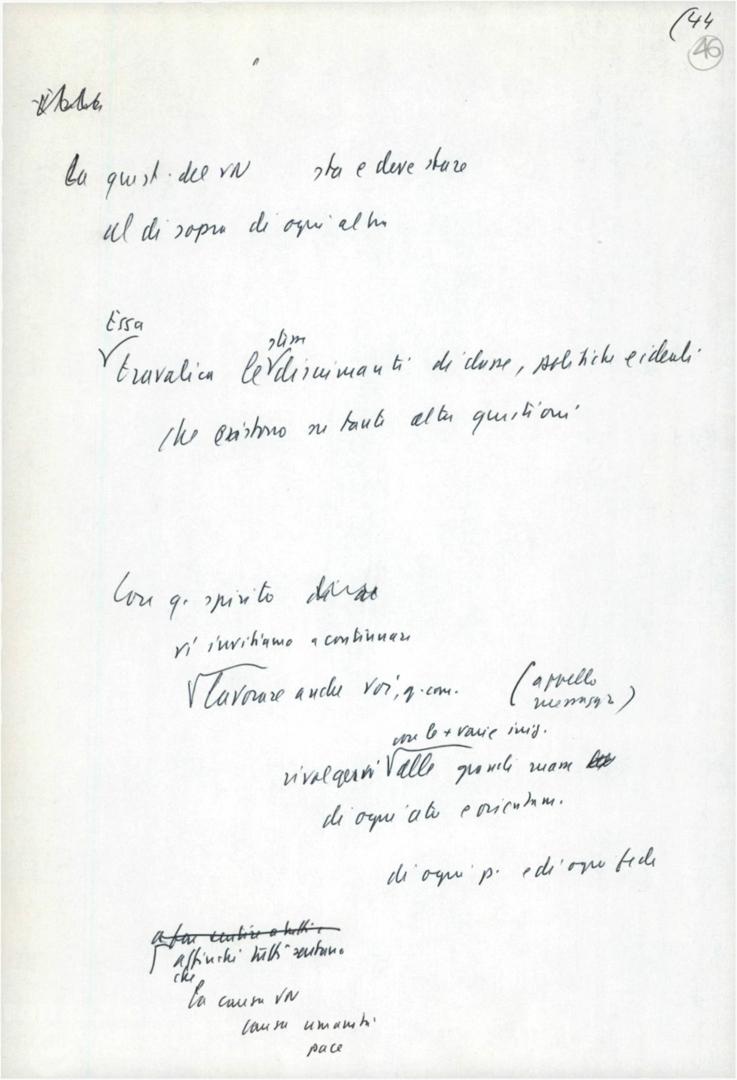 (44
46
La quest. del VN sta e deve stare
al di sopra di ogni altra
Essa
travalica le discriminanti di classe, politiche e ideali
che esistono su tante altre questioni
Con q. spirito
vi invitiamo a continuare
lavorare anche voi, q. com. (appello
messagg.)
con le + varie iniz.
rivolgervi alle grandi masse
di ogni età e orientam.
di ogni p. e di ogni fede
a far sentire a tutti
affinché tutti sentano
che
la causa VN
causa umanità
pace